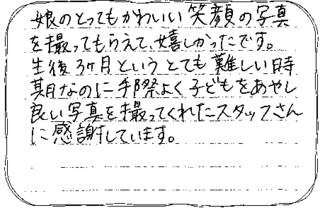 娘のとってもかわいい笑顔の写真
を撮ってもらえて、嬉しかったです。
生後3ヶ月というとても難しい時
期なのに手際よく子どもをあやし
良い写真を撮ってくれたスタッフさん
に感謝しています。